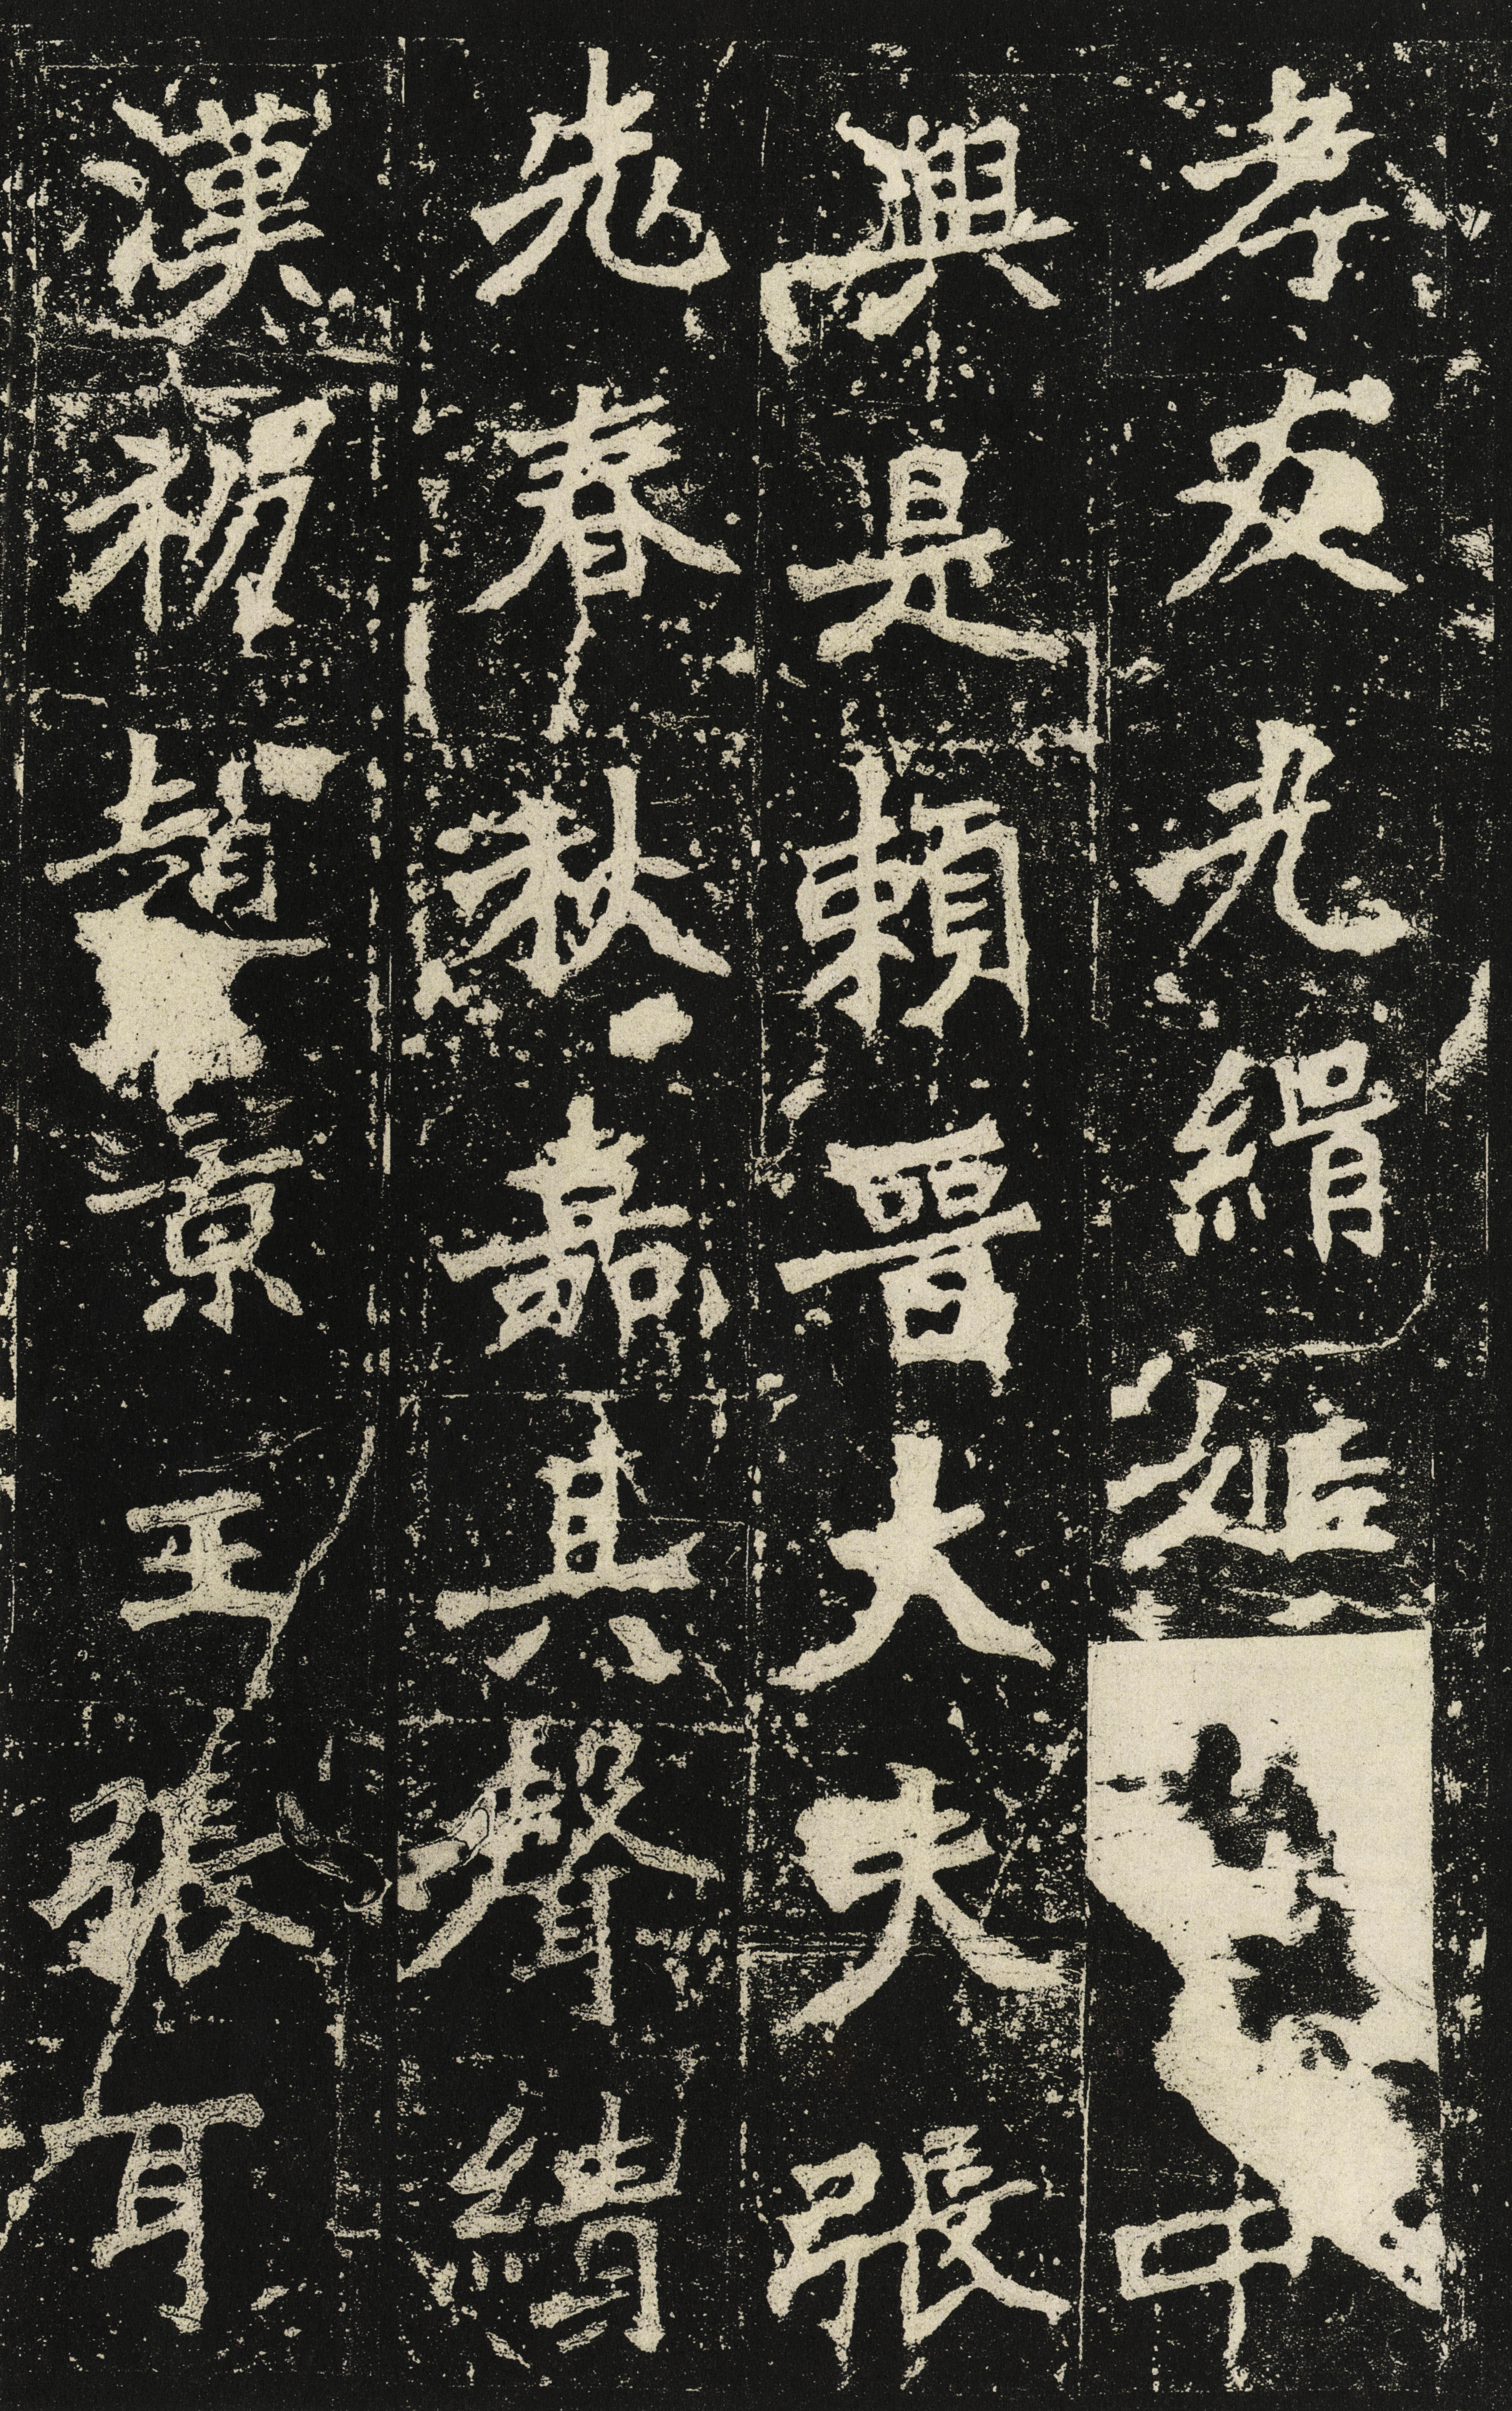 孝友光緝□□中
興是賴晉大夫張
老春秋嘉其聲績
漢初趙景王張耳